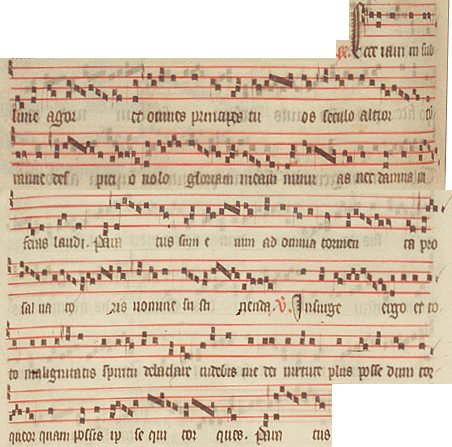 Ecce iam in sub
lime agor et omnes principes tu os seculo altior
des pici o nolo gloriam meam minu as nec damna in
feras laudi. Para tus sum e nim ad omnia tormen ta pro
sal ua to ris nomine su sti nenda. V. Insurge ergo et to
to malignitatis spiritu debachare uidebis me dei uirtute plus posse dum tor
queor quam possis ip se qui tor ques. Para tus